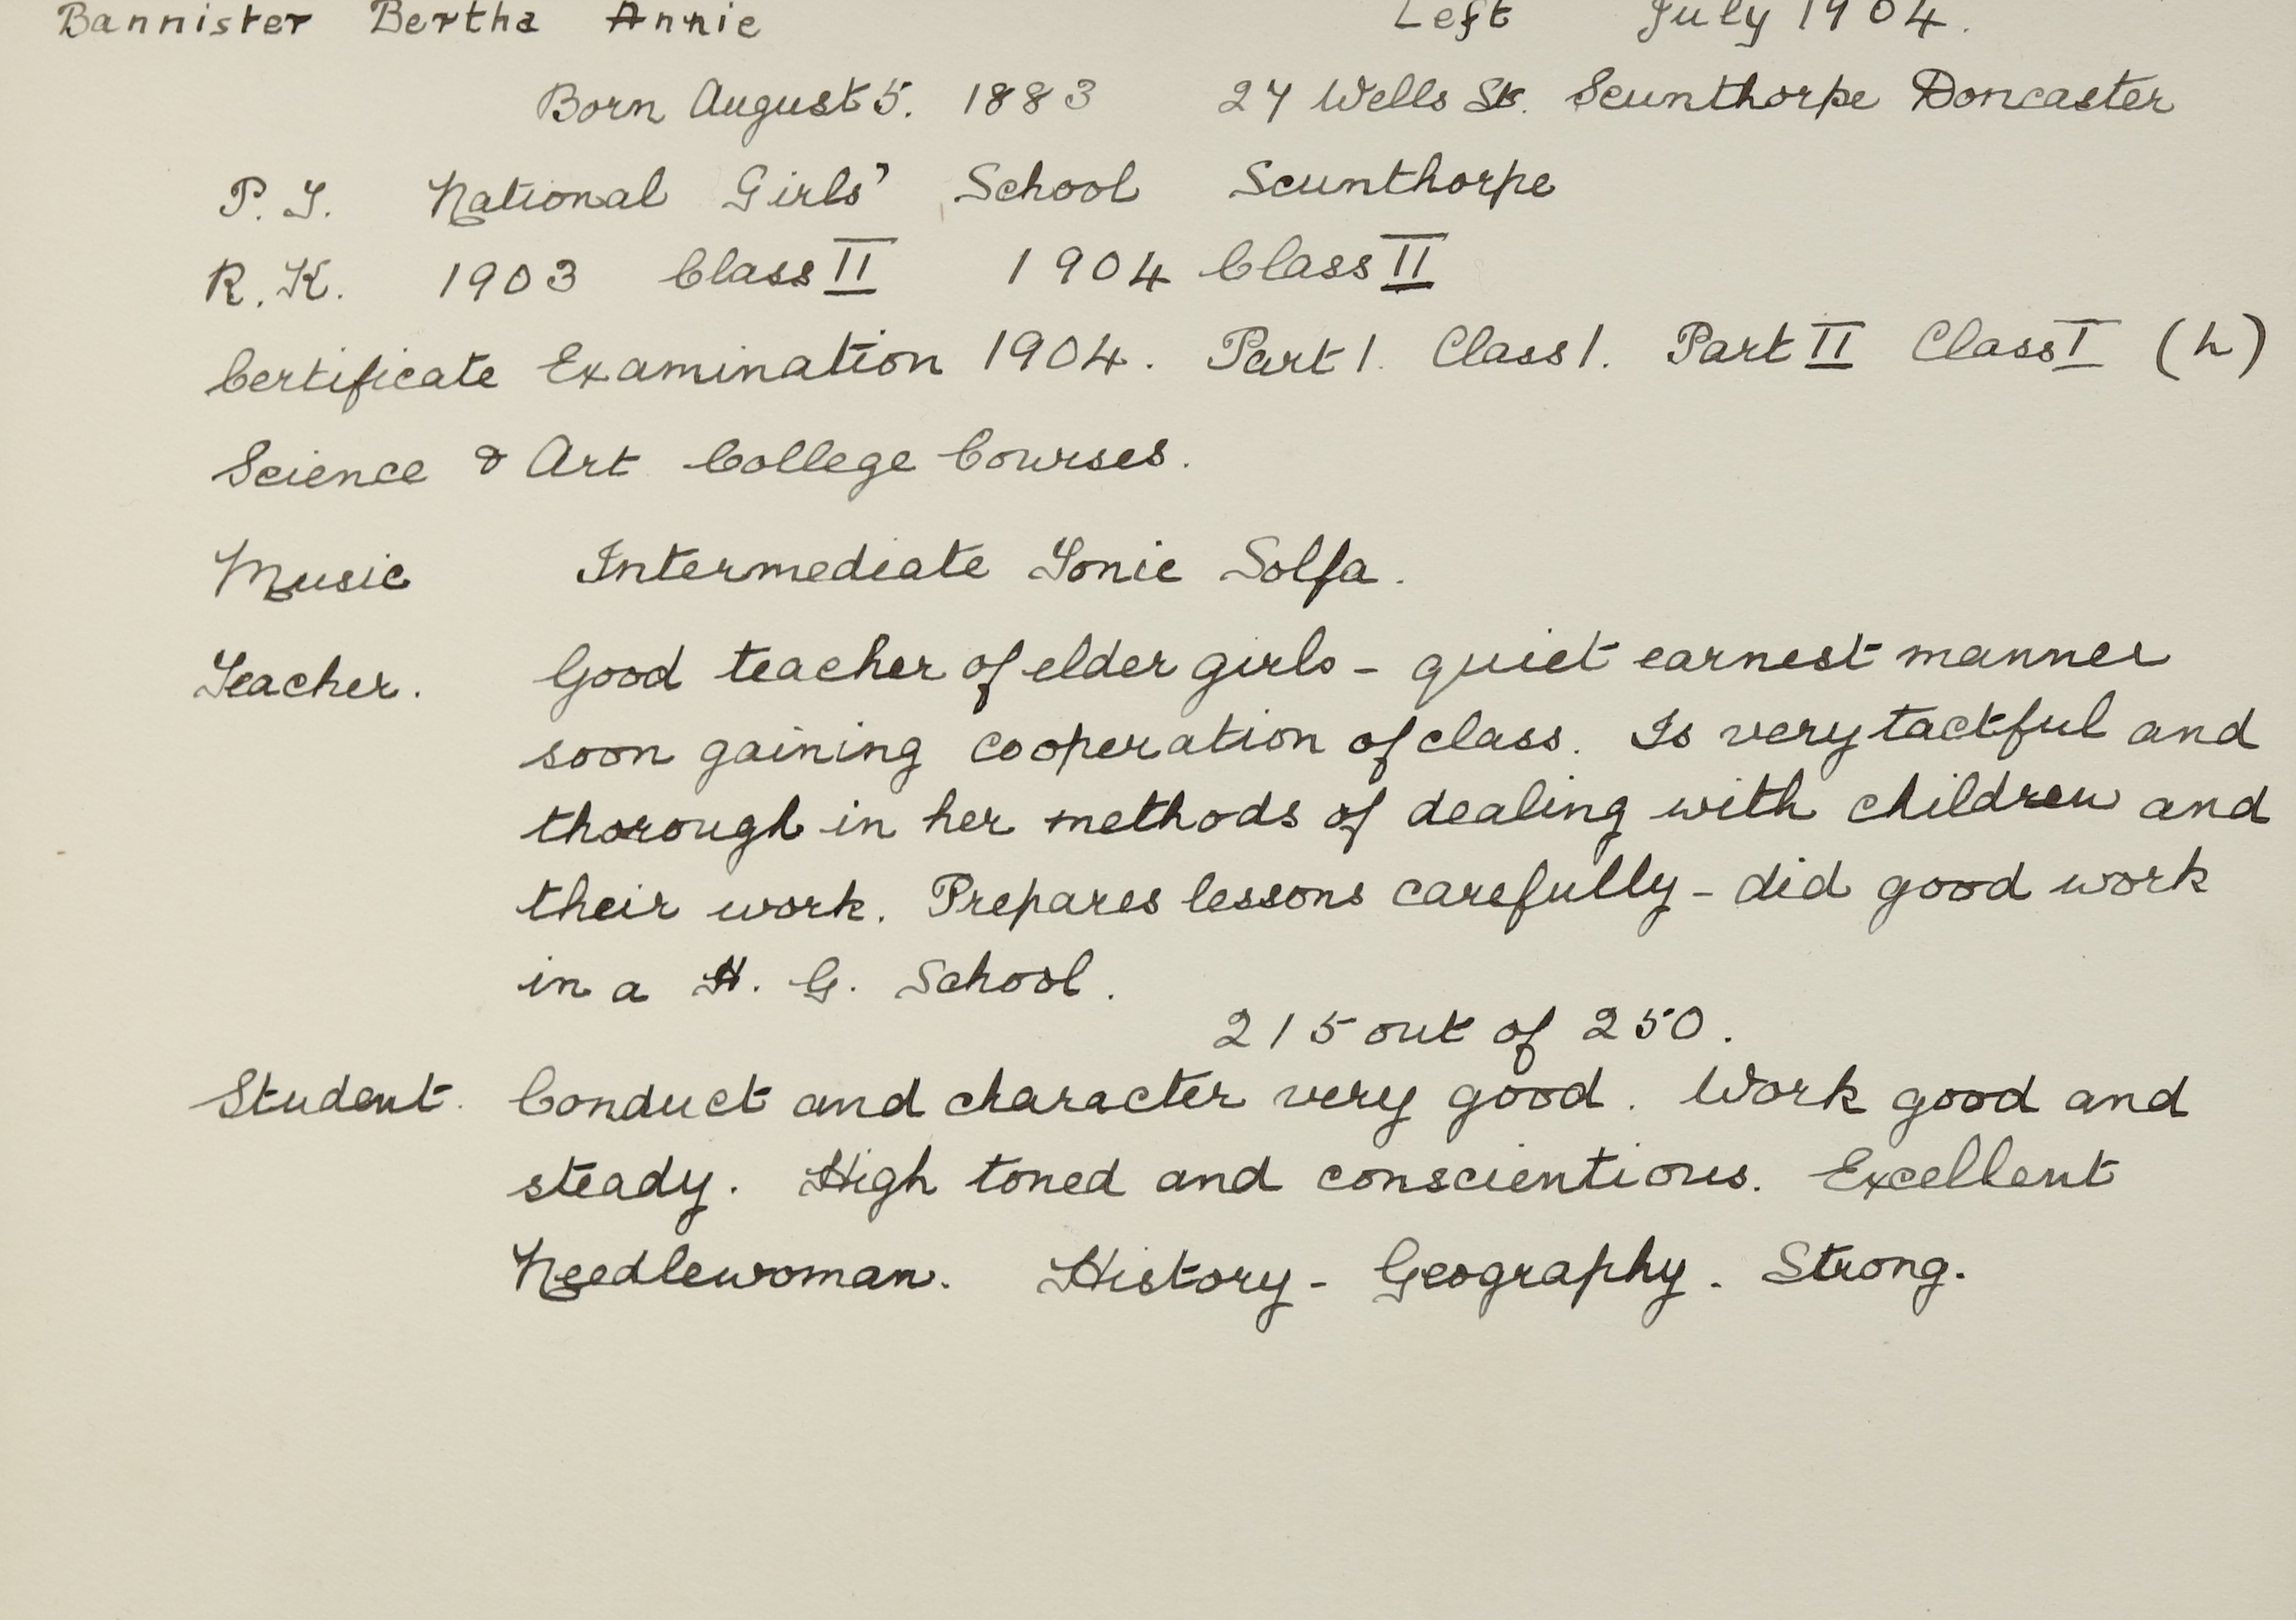 Bannister Bertha Annie Left July 1904.
Born August 5. 1883 27 Wells St. Scunthorpe Doncaster
P. T. National Girls' School Scunthorpe
R. K. 1903 Class II 1904 Class II
Certificate Examination 1904. Part 1. Class 1. Part II Class I (h)
Science & Art College Courses.
Music Intermediate Tonic Solfa.
Teacher. Good teacher of elder girls - quiet earnest manner
soon gaining cooperation of class. Is very tactful and
thorough in her methods of dealing with children and
their work. Prepares lessons carefully - did good work
in a H. G. School.
215 out of 250.
Student. Conduct and character very good. Work good and
steady. High toned and conscientious. Excellent
Needlewoman. History - Geography - Strong.